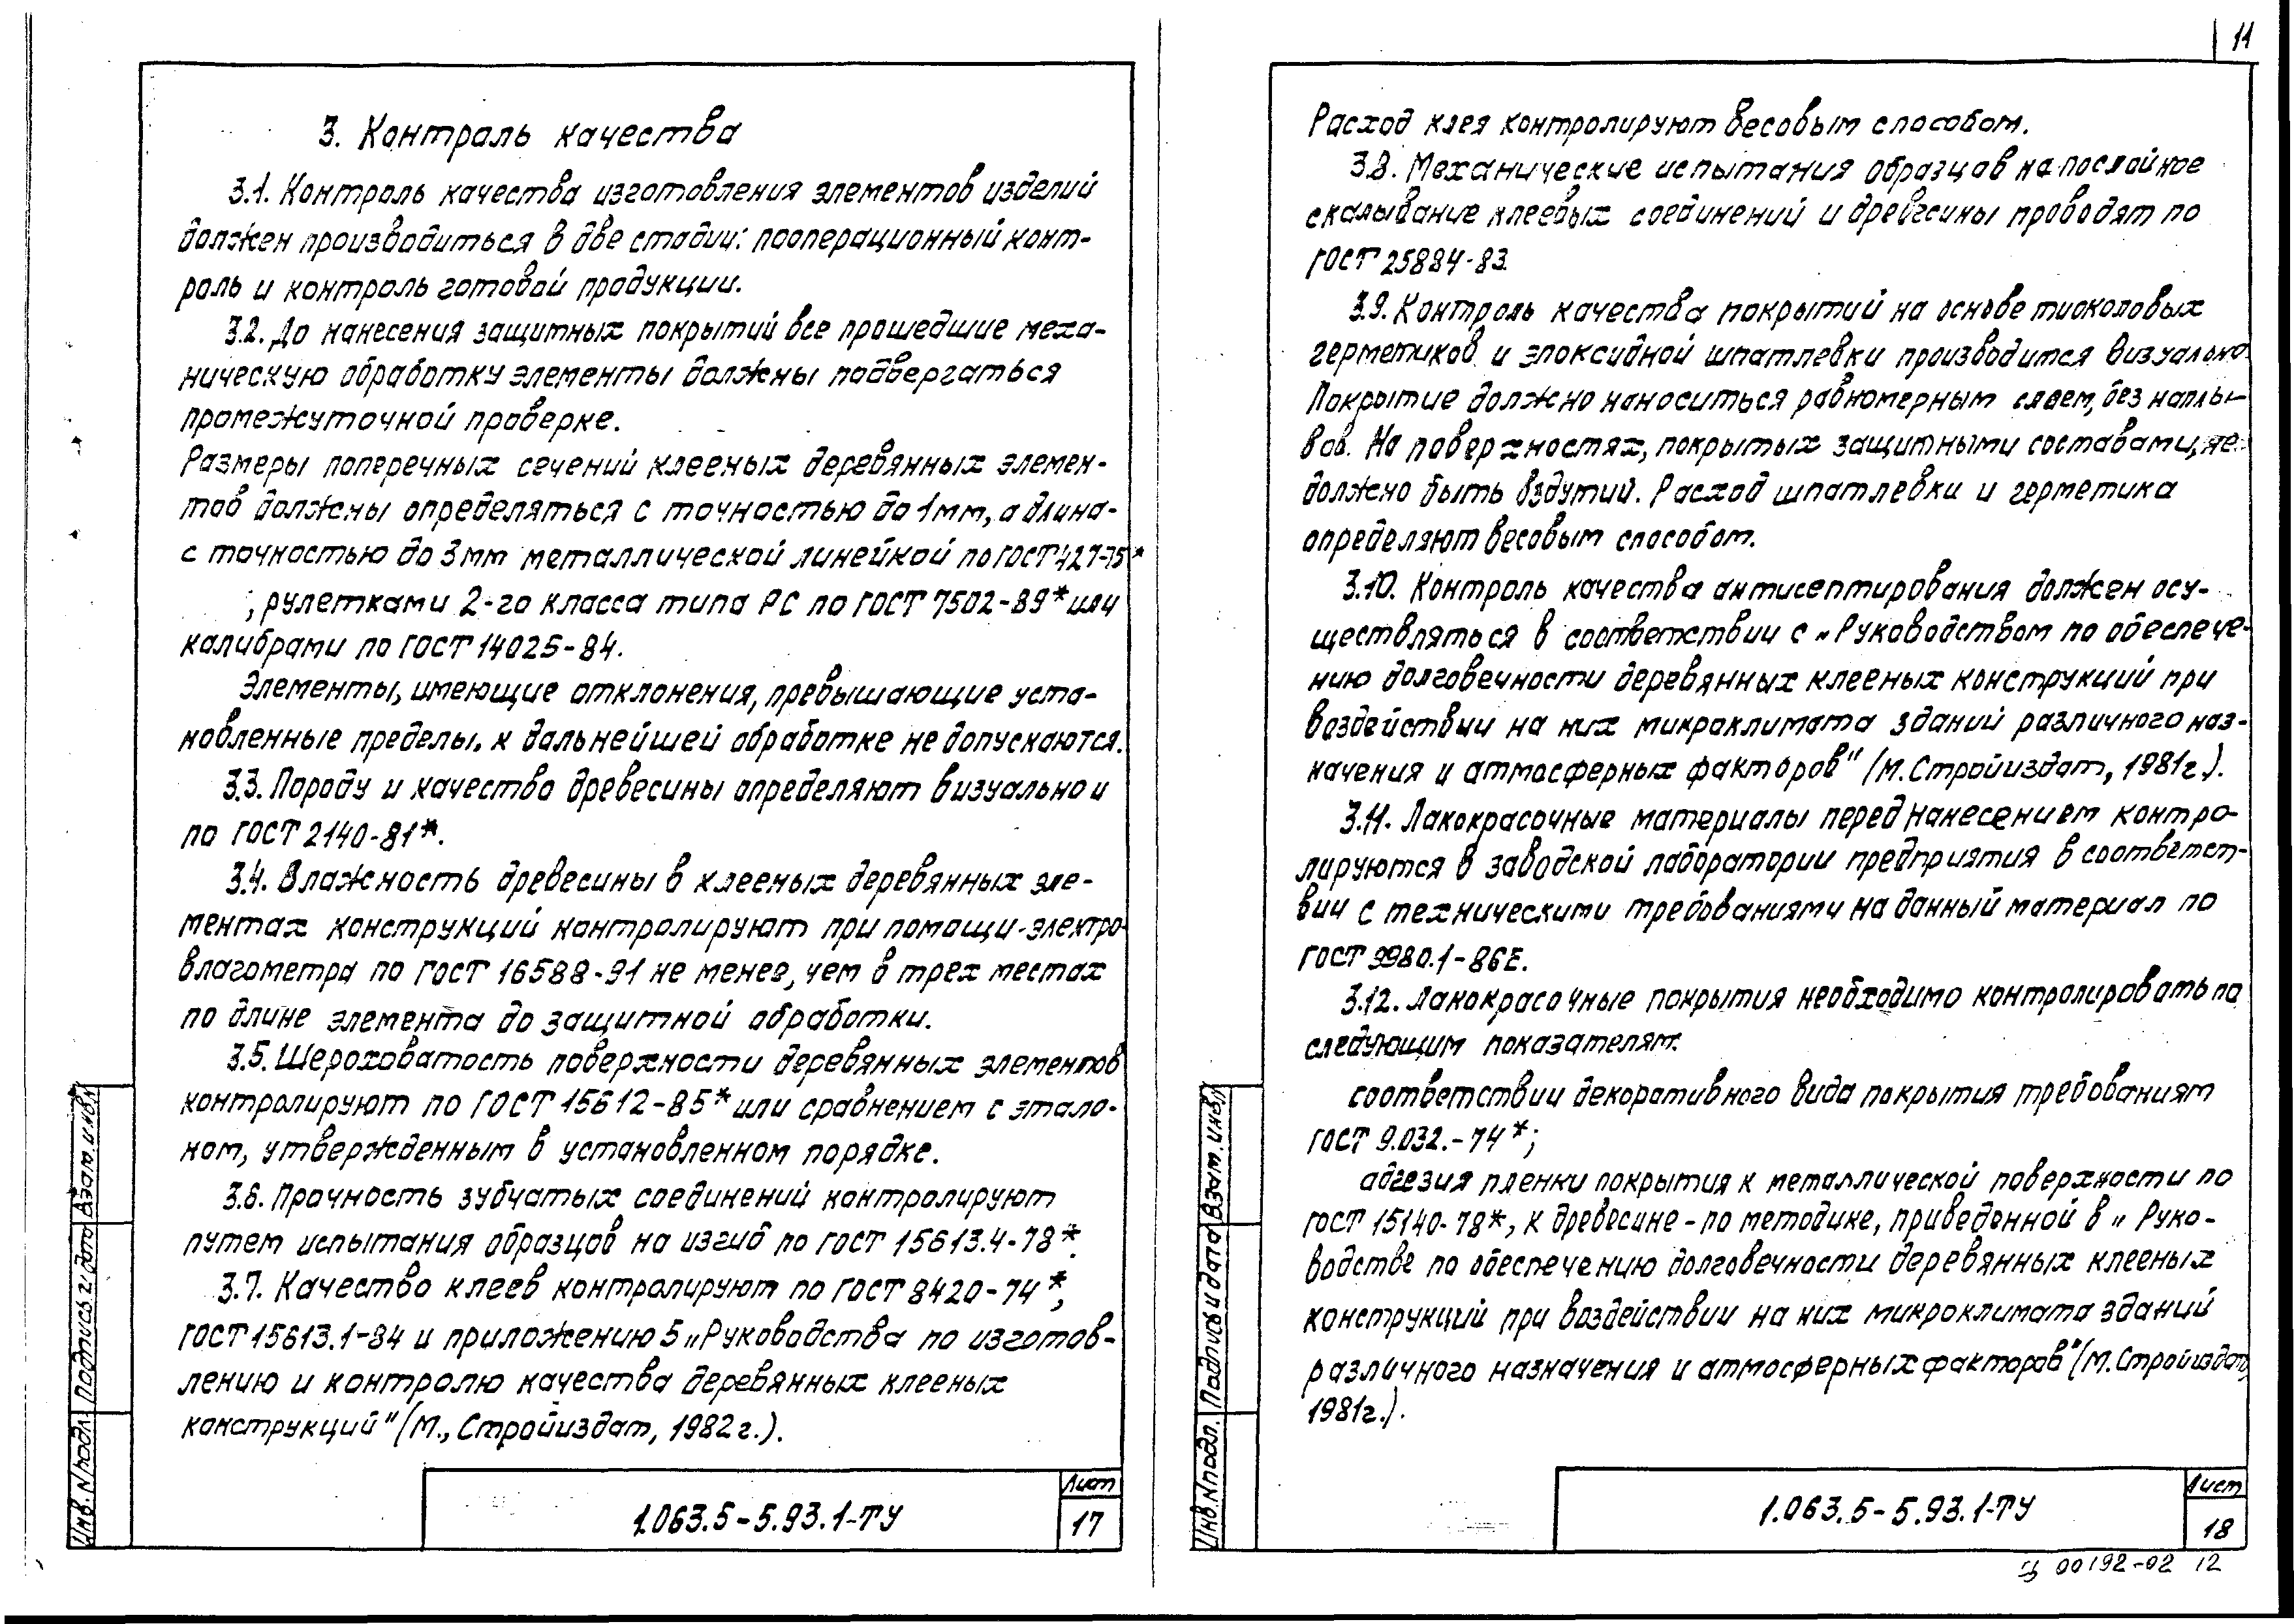 3. Контроль качества
3.1. Контроль качества изготовления элементов изделий
должен производиться в две стадии: пооперационный конт-
роль и контроль готовой продукции.
3.2. До нанесения защитных покрытий все прошедшие меха-
ническую обработку элементы должны подвергаться
промежуточной проверке.
Размеры поперечных сечений клееных деревянных элемен-
тов должны определяться с точностью до 1мм, а длина-
с точностью до 3мм металлической линейкой по ГОСТ 427-75*
; рулетками 2-го класса типа РС по ГОСТ 7502-89* или
калибрами по ГОСТ 14025-84.
Элементы, имеющие отклонения, превышающие уста-
новленные пределы, к дальнейшей обработке не допускаются.
3.3. Породу и качество древесины определяют визуально и
по ГОСТ 2140-81*.
3.4. Влажность древесины в клееных деревянных эле-
ментах конструкций контролируют при помощи электро-
влагометра по ГОСТ 16588-91 не менее, чем в трех местах
по длине элемента до защитной обработки.
3.5. Шероховатость поверхности деревянных элементов
контролируют по ГОСТ 15612-85* или сравнением с этало-
ном, утвержденным в установленном порядке.
3.6. Прочность зубчатых соединений контролируют
путем испытания образцов на изгиб по ГОСТ 15613.4-78*.
3.7. Качество клеев контролируют по ГОСТ 8420-74*,
ГОСТ 15613.1-84 и приложению 5 „Руководства по изготов-
лению и контролю качества деревянных клееных
конструкций" (М., Стройиздат, 1982г.).
Инв. N подл. Подпись и дата Взам. инв. N
1.063.5-5.93.1-ТУ
Лист
17
11
Расход клея контролируют весовым способом.
3.8. Механические испытания образцов на послойное
скалывание клеевых соединений и древесины проводят по
ГОСТ 25884-83.
3.9. Контроль качества покрытий на основе тиоколовых
герметиков и эпоксидной шпатлевки производится визуально.
Покрытие должно наноситься равномерным слоем, без наплы-
вов. На поверхностях, покрытых защитными составами, не
должно быть вздутий. Расход шпатлевки и герметика
определяют весовым способом.
3.10. Контроль качества антисептирования должен осу-
ществляться в соответствии с „Руководством по обеспече-
нию долговечности деревянных клееных конструкций при
воздействии на них микроклимата зданий различного наз-
начения и атмосферных факторов" (М. Стройиздат, 1981г.).
3.11. Лакокрасочные материалы перед нанесением контро-
лируются в заводской лаборатории предприятия в соответст-
вии с техническими требованиями на данный материал по
ГОСТ 9980.1-86Е.
3.12. Лакокрасочные покрытия необходимо контролировать по
следующим показателям:
соответствии декоративного вида покрытия требованиям
ГОСТ 9.032.-74*;
адгезия пленки покрытия к металлической поверхности по
ГОСТ 15140-78*, к древесине - по методике, приведенной в „Руко-
водстве по обеспечению долговечности деревянных клееных
конструкций при воздействии на них микроклимата зданий
различного назначения и атмосферных факторов" (М. Стройиздат,
1981г.).
Инв. N подл. Подпись и дата Взам. инв. N
1.063.5-5.93.1-ТУ
Лист
18
Ц 00192-02 12